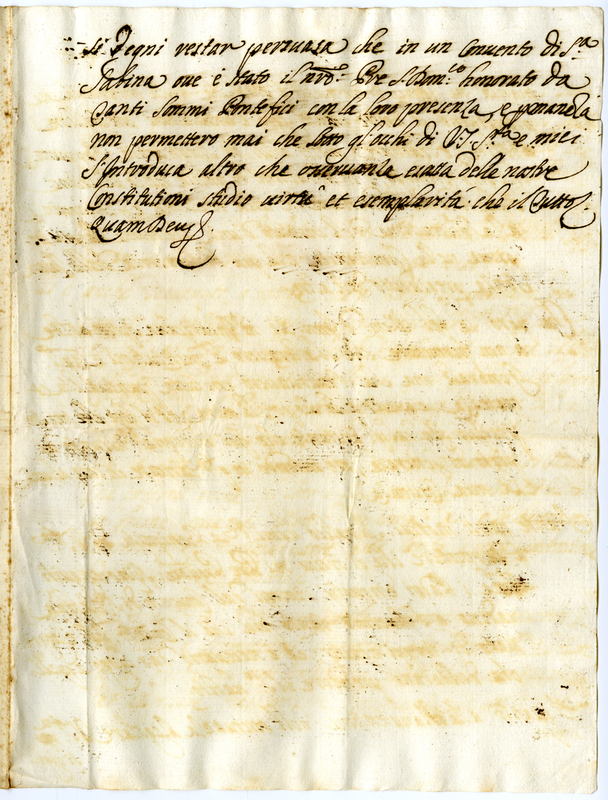 Si degni restar persuasa che in un Convento di S.ta
Sabina ove è stato il nro Pre S. Dom.co honorato da
tanti sommi Pontefici con la loro presenza, e
non permetterò mai che sotto gl'occhi di V. S.tà e miei
s'introduca altro che osservanza esatta delle nostre
Constitutioni studio virtù et esemplarità che il tutto
Quam Deus